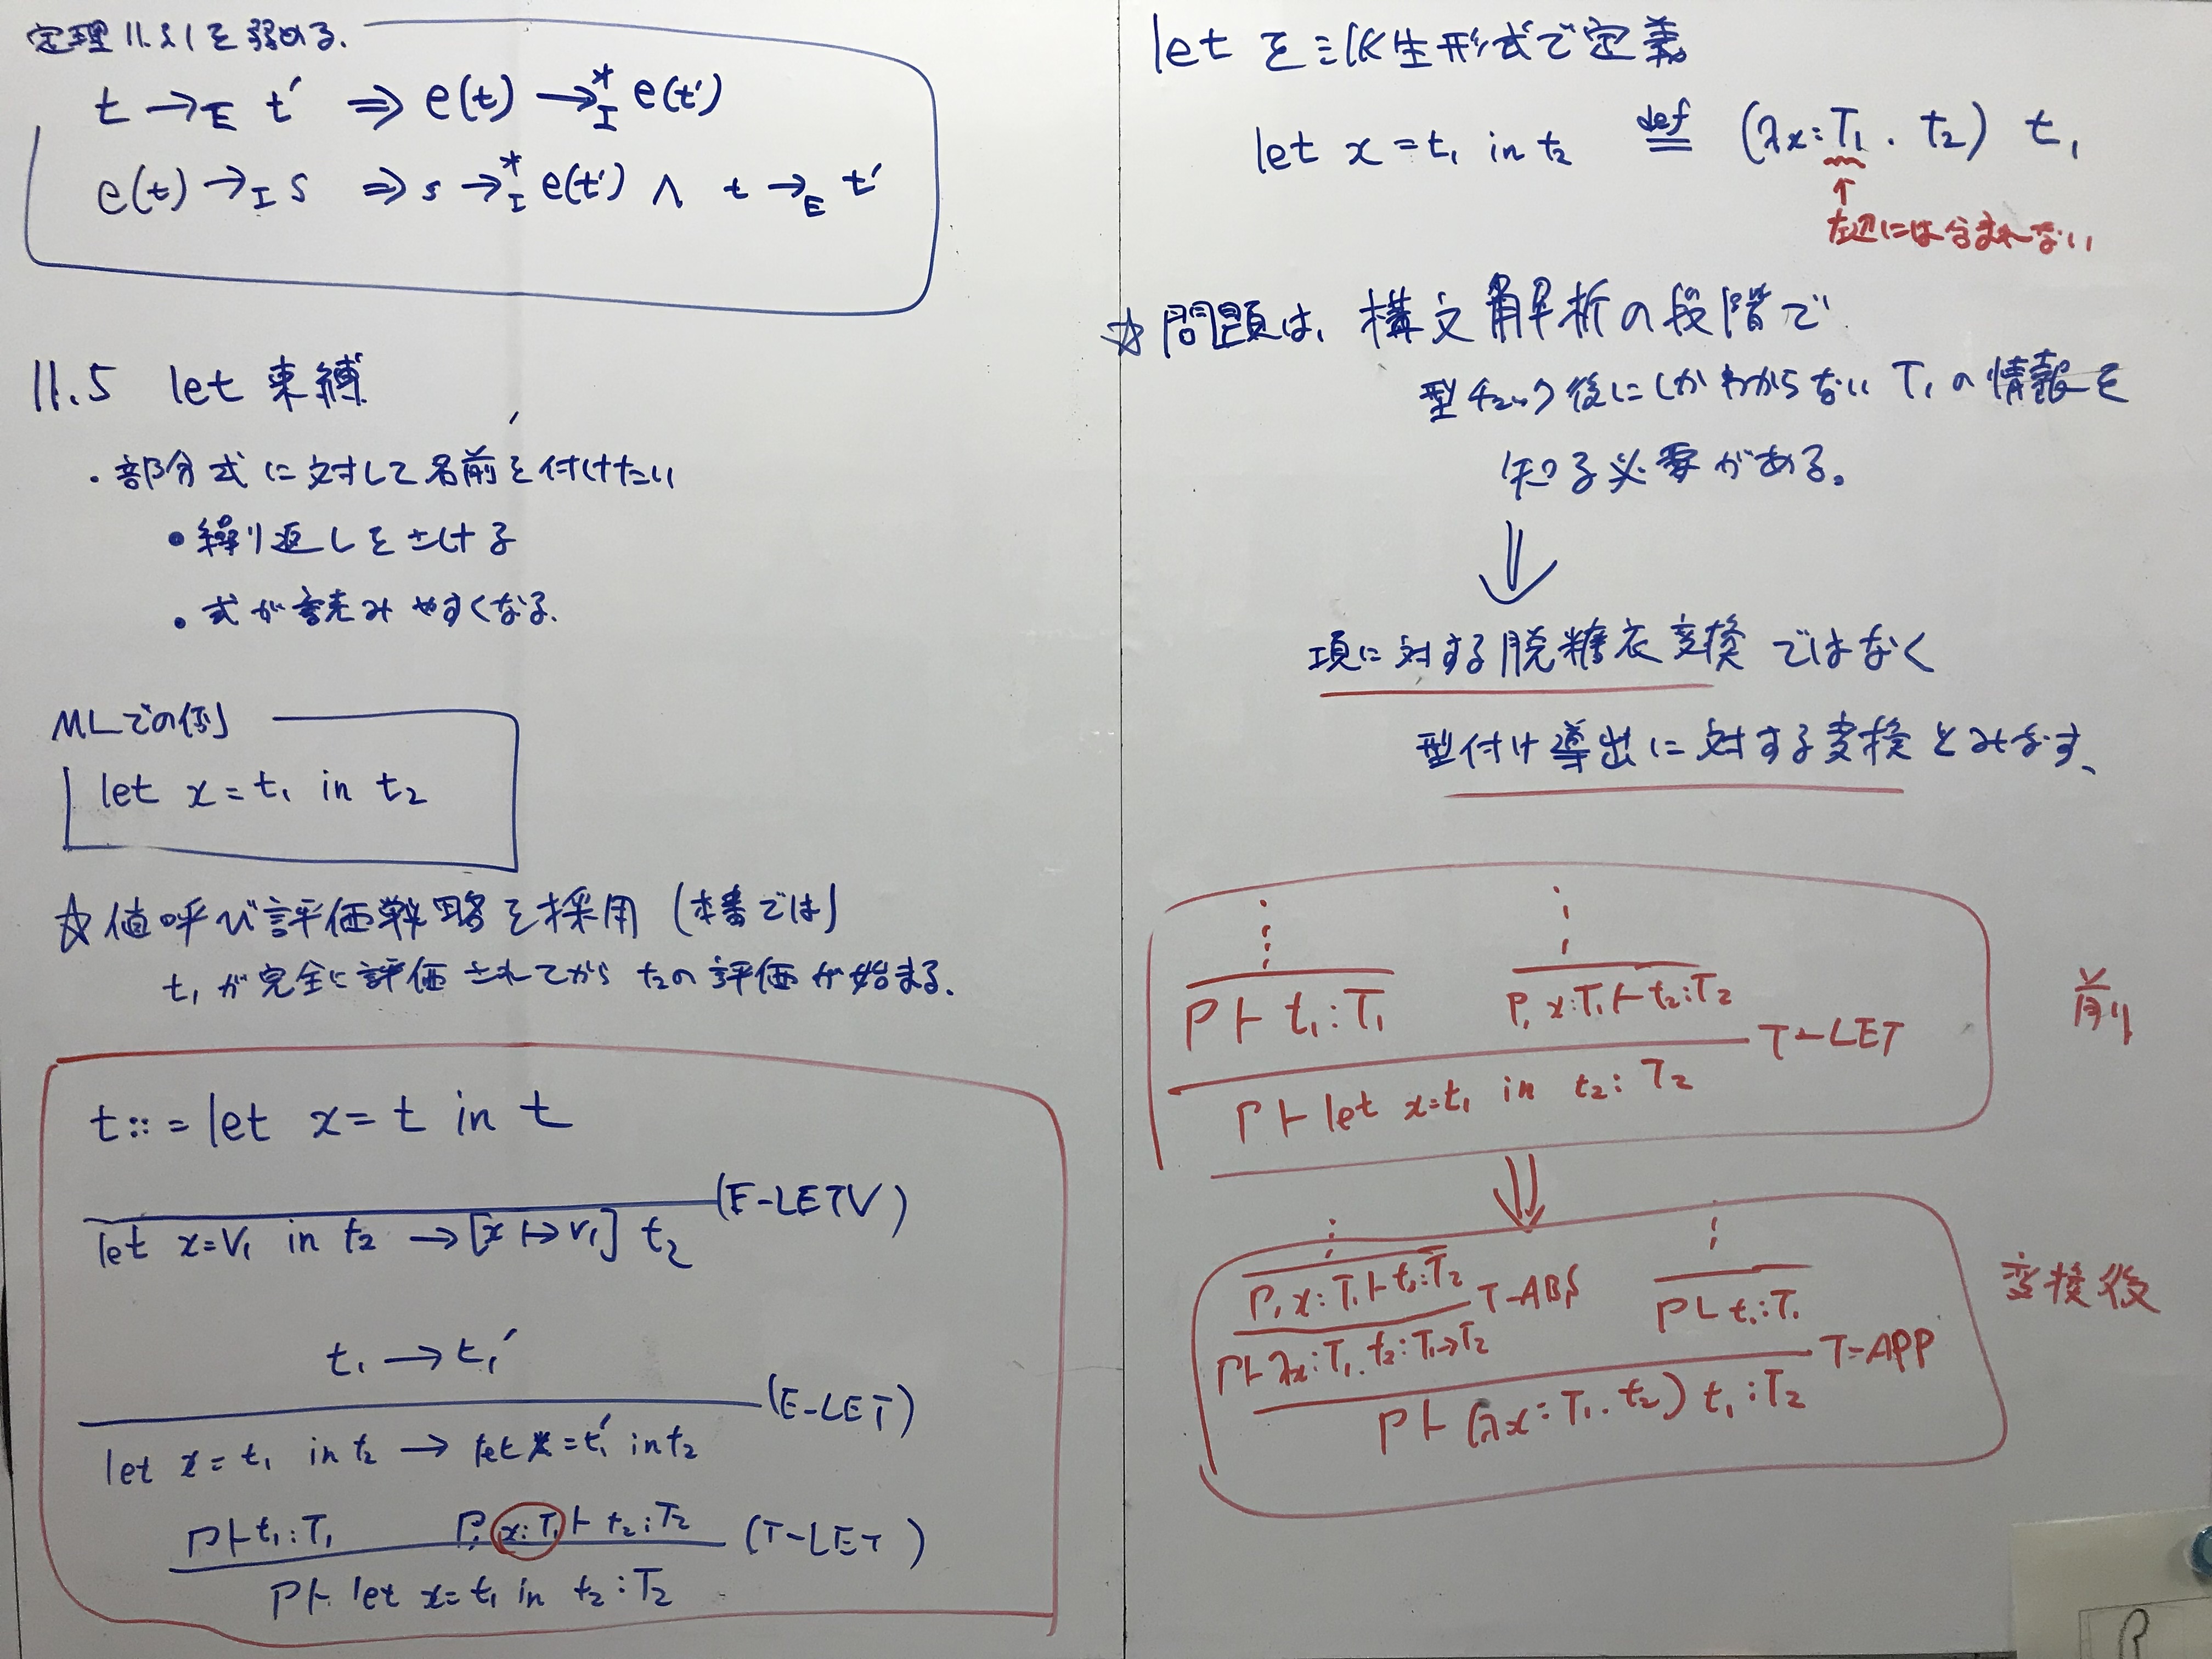 定理11.3.1を弱める.
t →E t' ⇒ e(t) →*I e(t')
e(t) →I s ⇒ s →*I e(t') ∧ t →E t'
11.5 let 束縛
・部分式に対して名前を付けたい
・繰り返しを避ける
・式が読みやすくなる.
MLでの例
let x = t₁ in t₂
☆値呼び評価戦略を採用 (本書では)
t₁が完全に評価されてからt₂の評価が始まる.
t ::= let x = t in t
let x=v₁ in t₂ → [x ↦ v₁] t₂ (E-LETV)
t₁ → t₁'
(E-LET)
let x = t₁ in t₂ → let x = t₁' in t₂
Γ ⊢ t₁:T₁ Γ, x:T₁ ⊢ t₂:T₂ (T-LET)
Γ ⊢ let x=t₁ in t₂ : T₂
let を派生形式で定義
let x = t₁ in t₂ def= (λx:T₁. t₂) t₁
↑
左辺には含まれない
☆問題は、構文解析の段階で
型チェック後にしかわからない T₁の情報を
知る必要がある。
⇓
項に対する脱糖衣変換ではなく
型付け導出に対する変換とみなす、
Γ ⊢ t₁:T₁ Γ, x:T₁ ⊢ t₂:T₂
T-LET
Γ ⊢ let x=t₁ in t₂ : T₂
前
⇓
Γ, x:T₁ ⊢ t₂:T₂ T-ABS
Γ ⊢ λx:T₁. t₂ : T₁→T₂ Γ ⊢ t₁:T₁
T-APP
Γ ⊢ (λx:T₁. t₂) t₁ : T₂
変換後